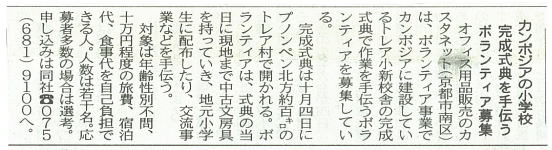 カンボジアの小学校
完成式典を手伝う
ボランティア募集
オフィス用品販売のカ
スタネット(京都市南区)
は、ボランティア事業で
カンボジアに建設してい
るトレア小新校舎の完成
式典で作業を手伝うボラ
ンティアを募集してい
る。
完成式典は十月四日に
プノンペン北方約百㌔のト
レア村で開かれる。ボ
ランティアは、式典の当
日に現地まで中古文房具
を持っていき、地元小学
生に配布したり、交流事
業などを手伝う。
対象は年齢性別不問、
十万円程度の旅費、宿泊
代、食事代を自己負担で
きる人。人数は若干名。応
募者多数の場合は選考。
申し込みは同社☎075
(681)9100へ。